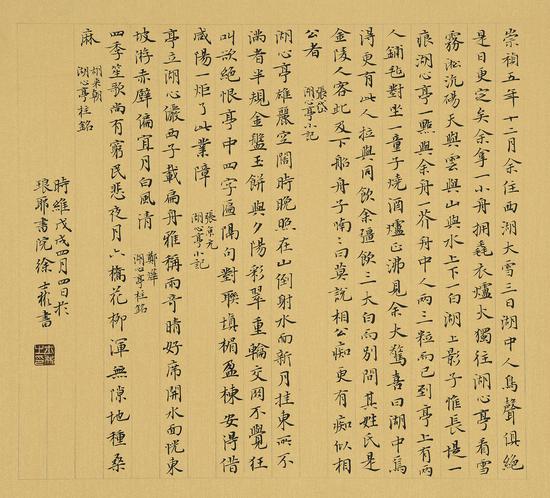 崇禎五年十二月余住西湖大雪三日湖中人鳥聲俱絕
是日更定矣余拏一小舟擁毳衣爐火獨往湖心亭看雪
霧凇沆碭天與雲與山與水上下一白湖上影子惟長堤一
痕湖心亭一點與余舟一芥舟中人兩三粒而已到亭上有兩
人鋪毡對坐一童子燒酒爐正沸見余大驚喜曰湖中焉
得更有此人拉與同飲余彊飲三大白而別問其姓氏是
金陵人客此及下船舟子喃々曰莫說相公癡更有癡似相
公者
張岱
湖心亭小記
湖心亭雄麗空闊時晚照在山倒射水面新月挂東所不
滿者半規金盤玉餅與夕陽彩翠重輪交网不覺狂
叫欲絕恨亭中四字匾隔句對聯填楣盈棟安得借
咸陽一炬了此業障
張京元
湖心亭小記
亭立湖心儼西子載扁舟雅稱雨奇晴好席開水面恍東
坡游赤壁偏宜月白風清
鄭燁
湖心亭柱銘
四季笙歌尚有窮民悲夜月六橋花柳渾無隙地種桑
麻
胡來朝
湖心亭柱銘
時維戊戌四月四日於
琅耶書院徐士彬書